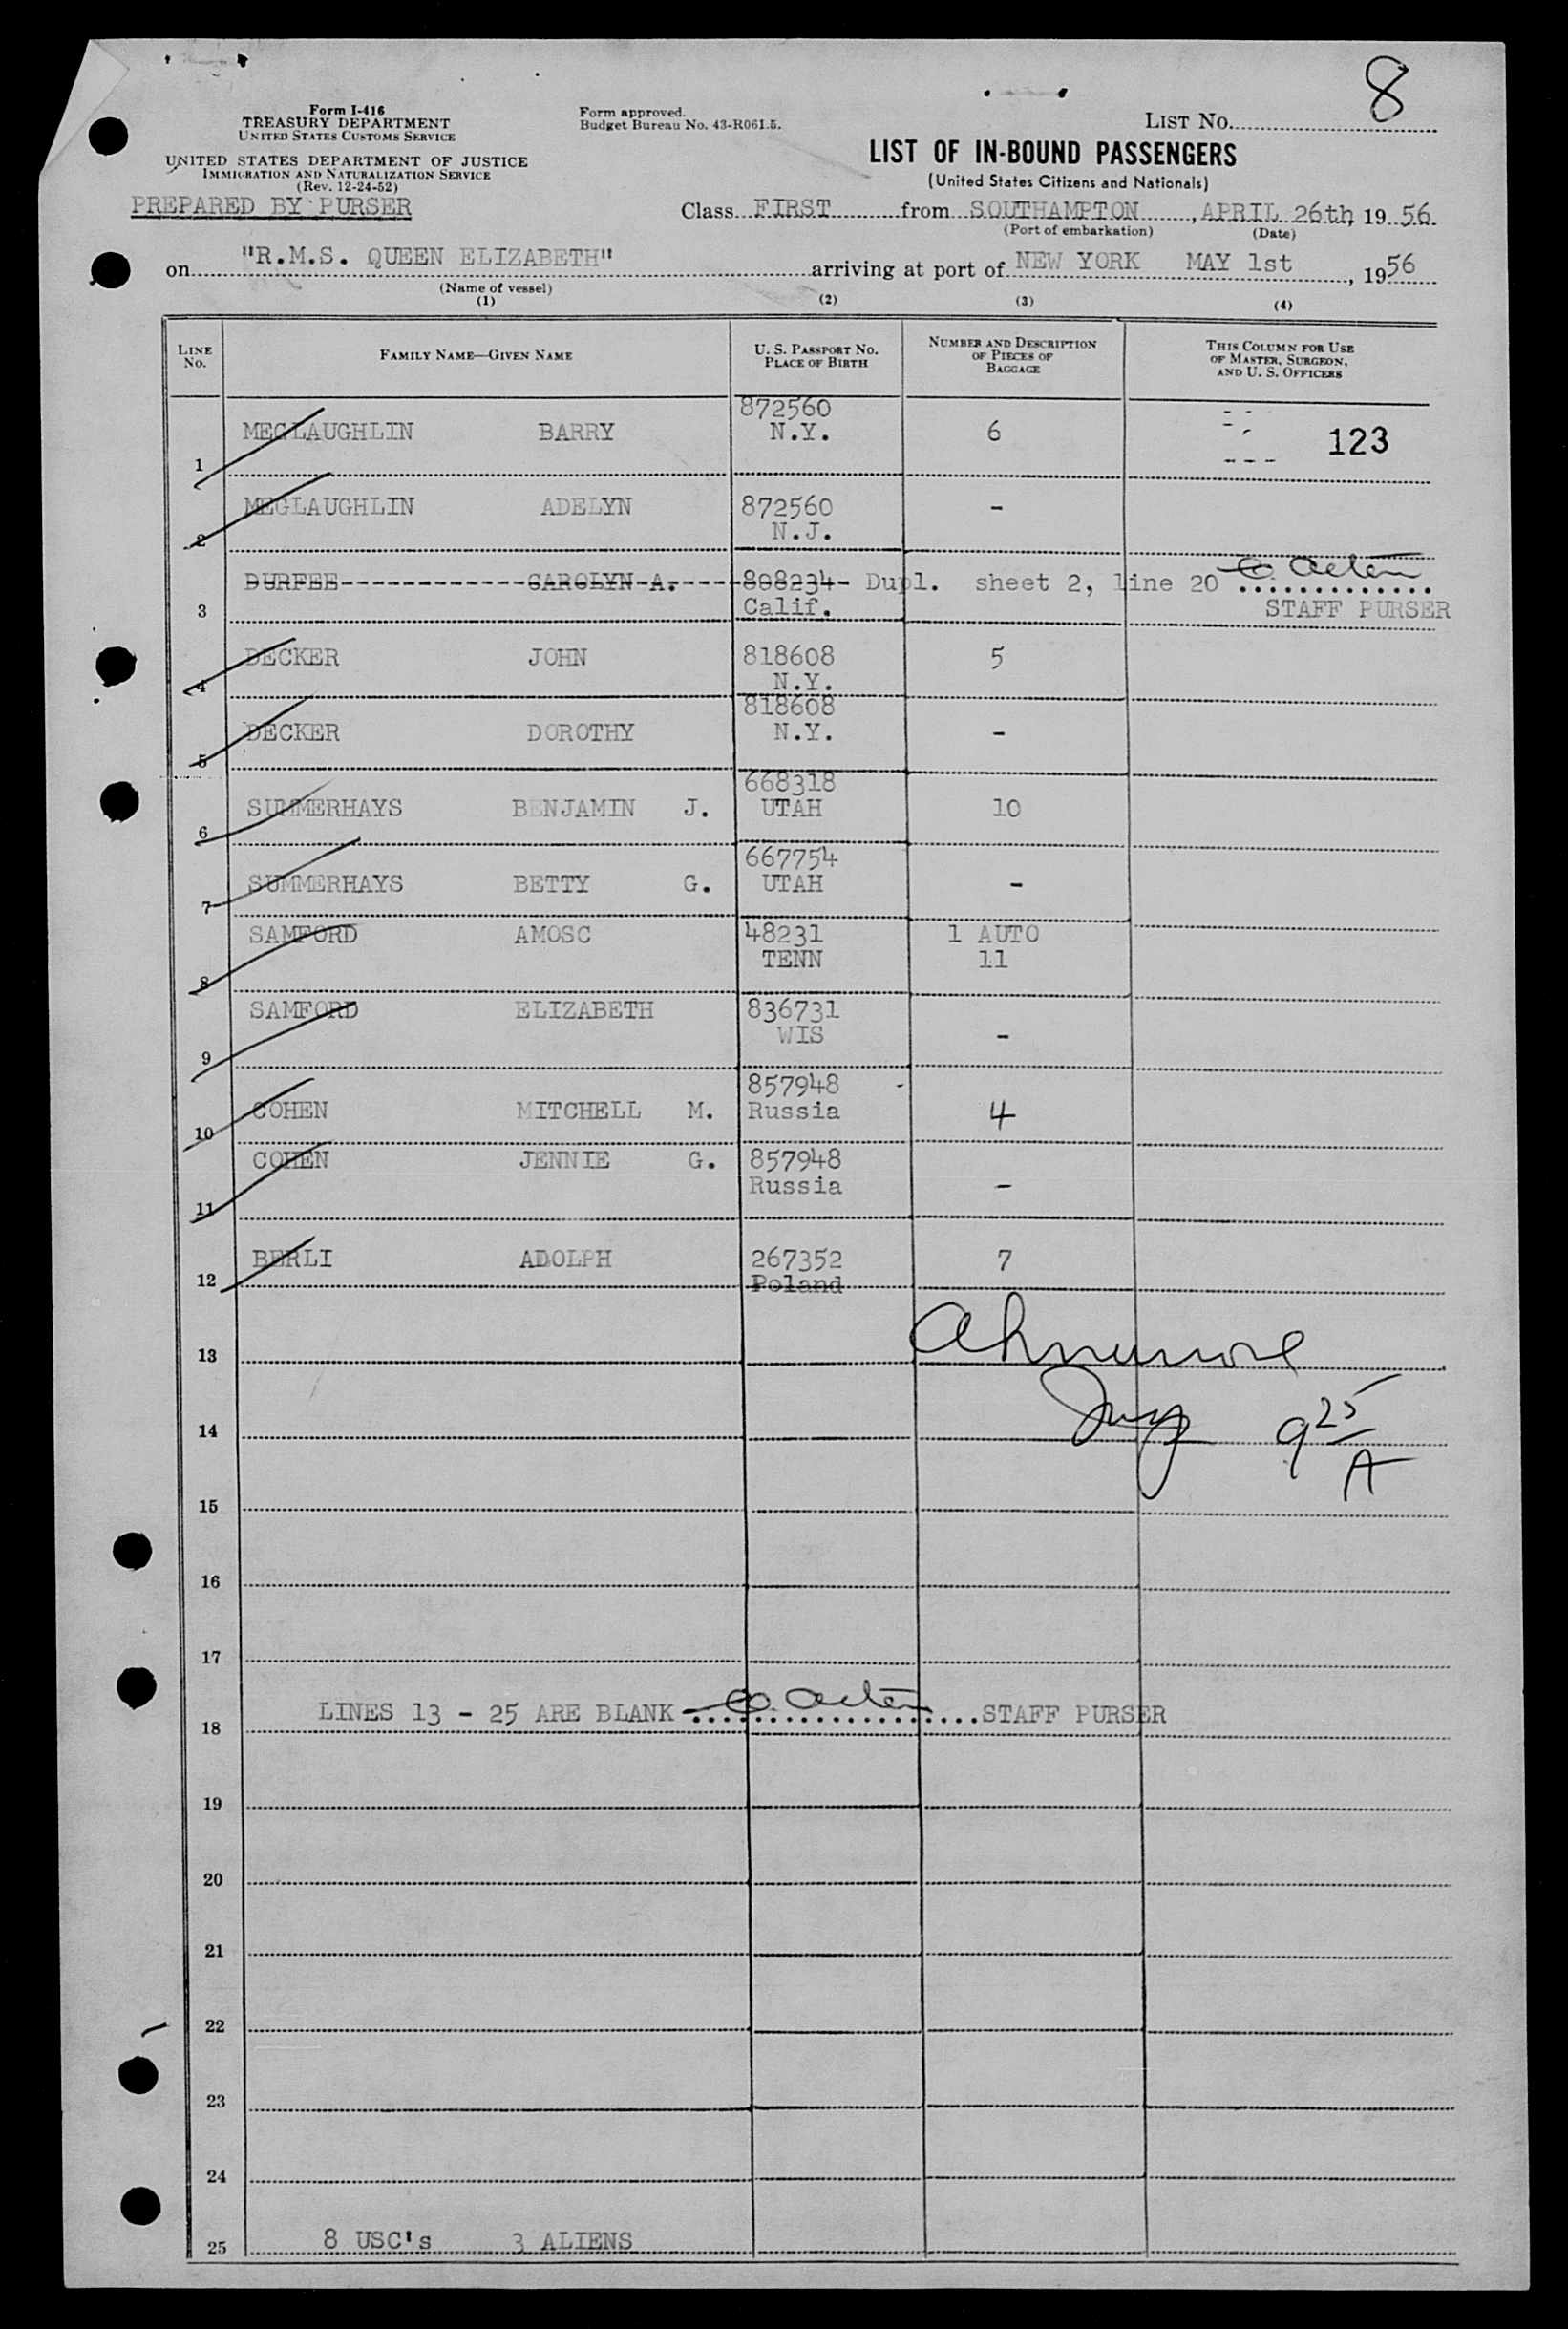 8
Form I-416
TREASURY DEPARTMENT
UNITED STATES CUSTOMS SERVICE
UNITED STATES DEPARTMENT OF JUSTICE
IMMIGRATION AND NATURALIZATION SERVICE
(Rev. 12-24-52)
PREPARED BY PURSER
Form approved.
Budget Bureau No. 43-R061.5.
LIST NO.
LIST OF IN-BOUND PASSENGERS
(United States Citizens and Nationals)
Class FIRST from SOUTHAMPTON, APRIL 26th, 19 56
(Port of embarkation) (Date)
on "R.M.S. QUEEN ELIZABETH" arriving at port of NEW YORK MAY 1st, 1956
(Name of vessel)
(1) (2) (3) (4)
LINE NO. FAMILY NAME—GIVEN NAME U. S. PASSPORT NO. PLACE OF BIRTH NUMBER AND DESCRIPTION OF PIECES OF BAGGAGE THIS COLUMN FOR USE OF MASTER, SURGEON, AND U. S. OFFICERS
872560
MEGLAUGHLIN BARRY N.Y. 6 123
1
MEGLAUGHLIN ADELYN 872560 -
2 N.J.
DURFEE CAROLYN A. 808234 Dupl. sheet 2, line 20
3 Calif. STAFF PURSER
DECKER JOHN 818608 5
4 N.Y.
818608
DECKER DOROTHY N.Y. -
5
668318
SUMMERHAYS BENJAMIN J. UTAH 10
6
667754
SUMMERHAYS BETTY G. UTAH -
7
SAMFORD AMOSC 48231 1 AUTO
8 TENN 11
SAMFORD ELIZABETH 836731
9 WIS -
857948 -
COHEN MITCHELL M. Russia 4
10
COHEN JENNIE G. 857948
11 Russia -
BERLI ADOLPH 267352 7
12 Poland
13
14 9 25 A
15
16
17
LINES 13 - 25 ARE BLANK STAFF PURSER
18
19
20
21
22
23
24
25 8 USC's 3 ALIENS